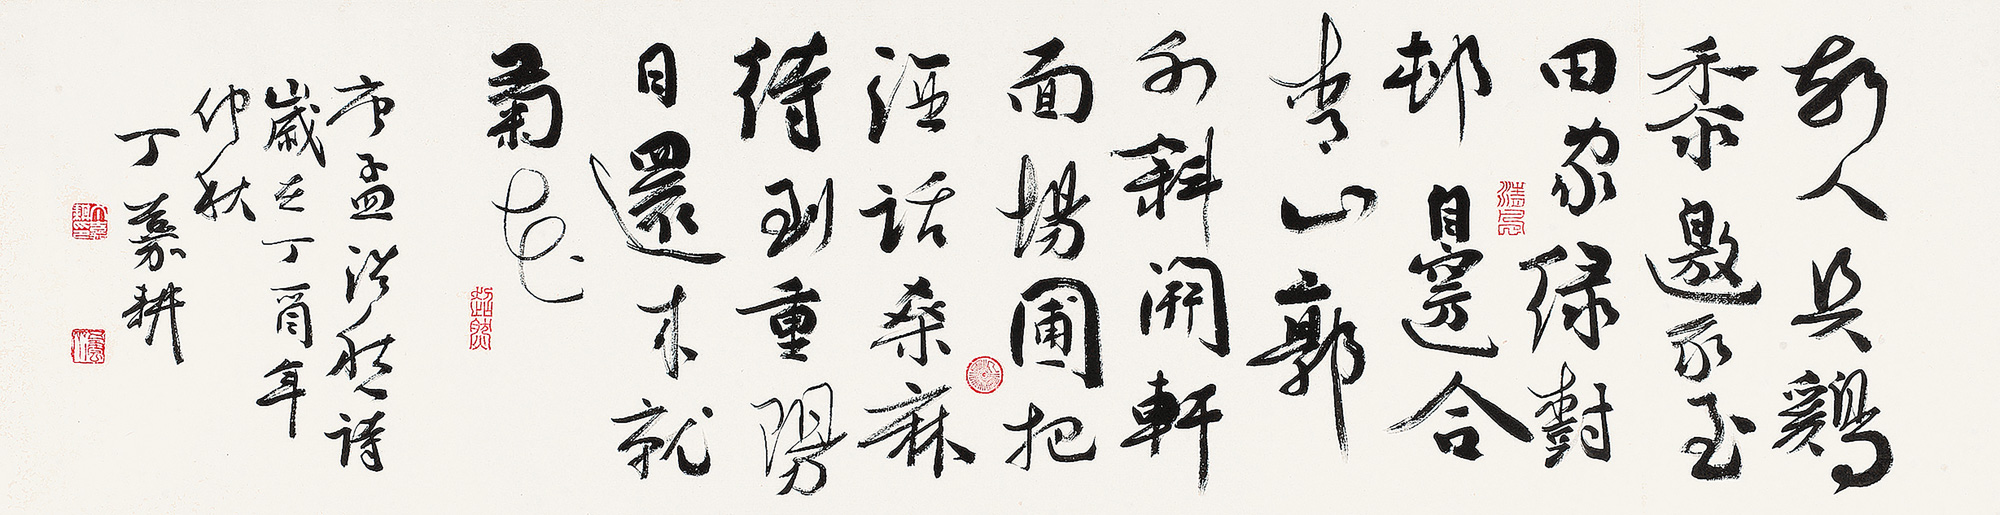 故人具鷄
黍邀我至
田家緑樹
邨邊合
青山郭
外斜開軒
面場圃把
酒話桑麻
待到重陽
日還來就
菊花
唐孟浩然詩
歲在丁酉年
仲秋
丁嘉耕
超然